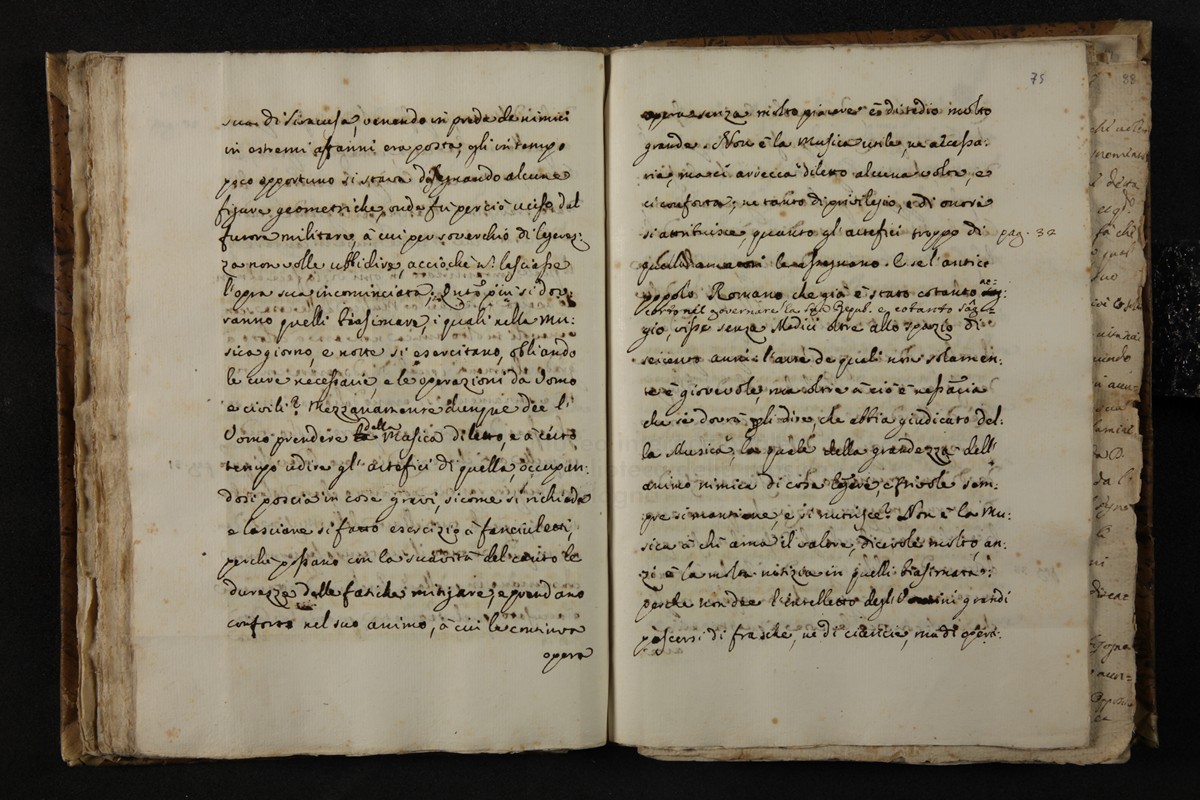 sua di Siracusa, venendo in preda de nimici
in estremi affanni era posta, egli in tempo
poco opportuno si stava disegnando alcune
figure geometriche, onde fu perciò ucciso dal
furore militare, à cui per soverchio di legerez:
za non volle ubbidire, acciochè n. lasciasse
l'opra sua incominciata; Quãto più si dov:
ranno quelli biasimare, i quali nella Mu:
sica giorno, e notte si esercitano, obliando
le cure necessarie, e le operazioni da Uomo
e civili? Mezzanamente dunque dee l'
Uomo prendere della Musica diletto, e à certo
tempo udire gl' artefici di quella, occupan:
dosi poscia in cose gravi, sicome si richiede
e lasciare sì fatto esercizio à fanciuletti,
perchè possano con la suavità del canto le
durezze delle fatiche mitigare, e prendano
conforto nel suo animo, à cui le continva
opera
75
opera senza molto giovare è di tedio molto
grande. Non è la Musica utile, ne necessa:
ria, ma ci arrecca diletto alcuna volta, e
ci conforta; ne tanto di privilegio, e di onore
si attribuisce, quanto gl' artefici troppo di
pag. 32
le assegnano. E se l'antico
popolo Romano che già è stato cotanto ac:
corto nel governare la sua Repub. e cotanto sag:
gio, visse senza Medici oltre allo spazio di
seicento anni: l'arte de quali non solamen:
te è giovevole, ma oltre à ciò è necessaria
che si dovrà gli dire, che abbia giudicato del:
la Musica, la quale della grandezza dell'
animo nimica di cosa legere, e frivole sem:
pre si mantiene, e si nutrisce? Non è la Mu:
sica à chi ama il valore, dicevole molto, an:
zi è la molta notizia in quelli biasimata:
perche non dee l'intelletto degli Uomini grandi
pascersi di frasche, ne di ciancie, ma di opera:
88